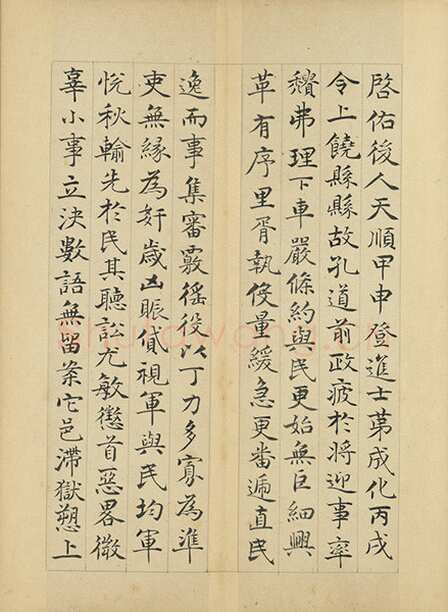 啓佑後人天順甲申登進士苐成化丙戌
令上饒縣縣故孔道前政疲於將迎事率
穨弗理下車嚴條約與民更始無巨細興
革有序里胥執役量緩急更畨遞直民
逸而事集審覈徭役以丁力多寡為準
吏無緣為奸歳凶賑貸視軍與民均軍
恱秋輸先於民其聽訟尤敏懲首惡畧微
辜小事立决數語無留案它邑滯獄愬上